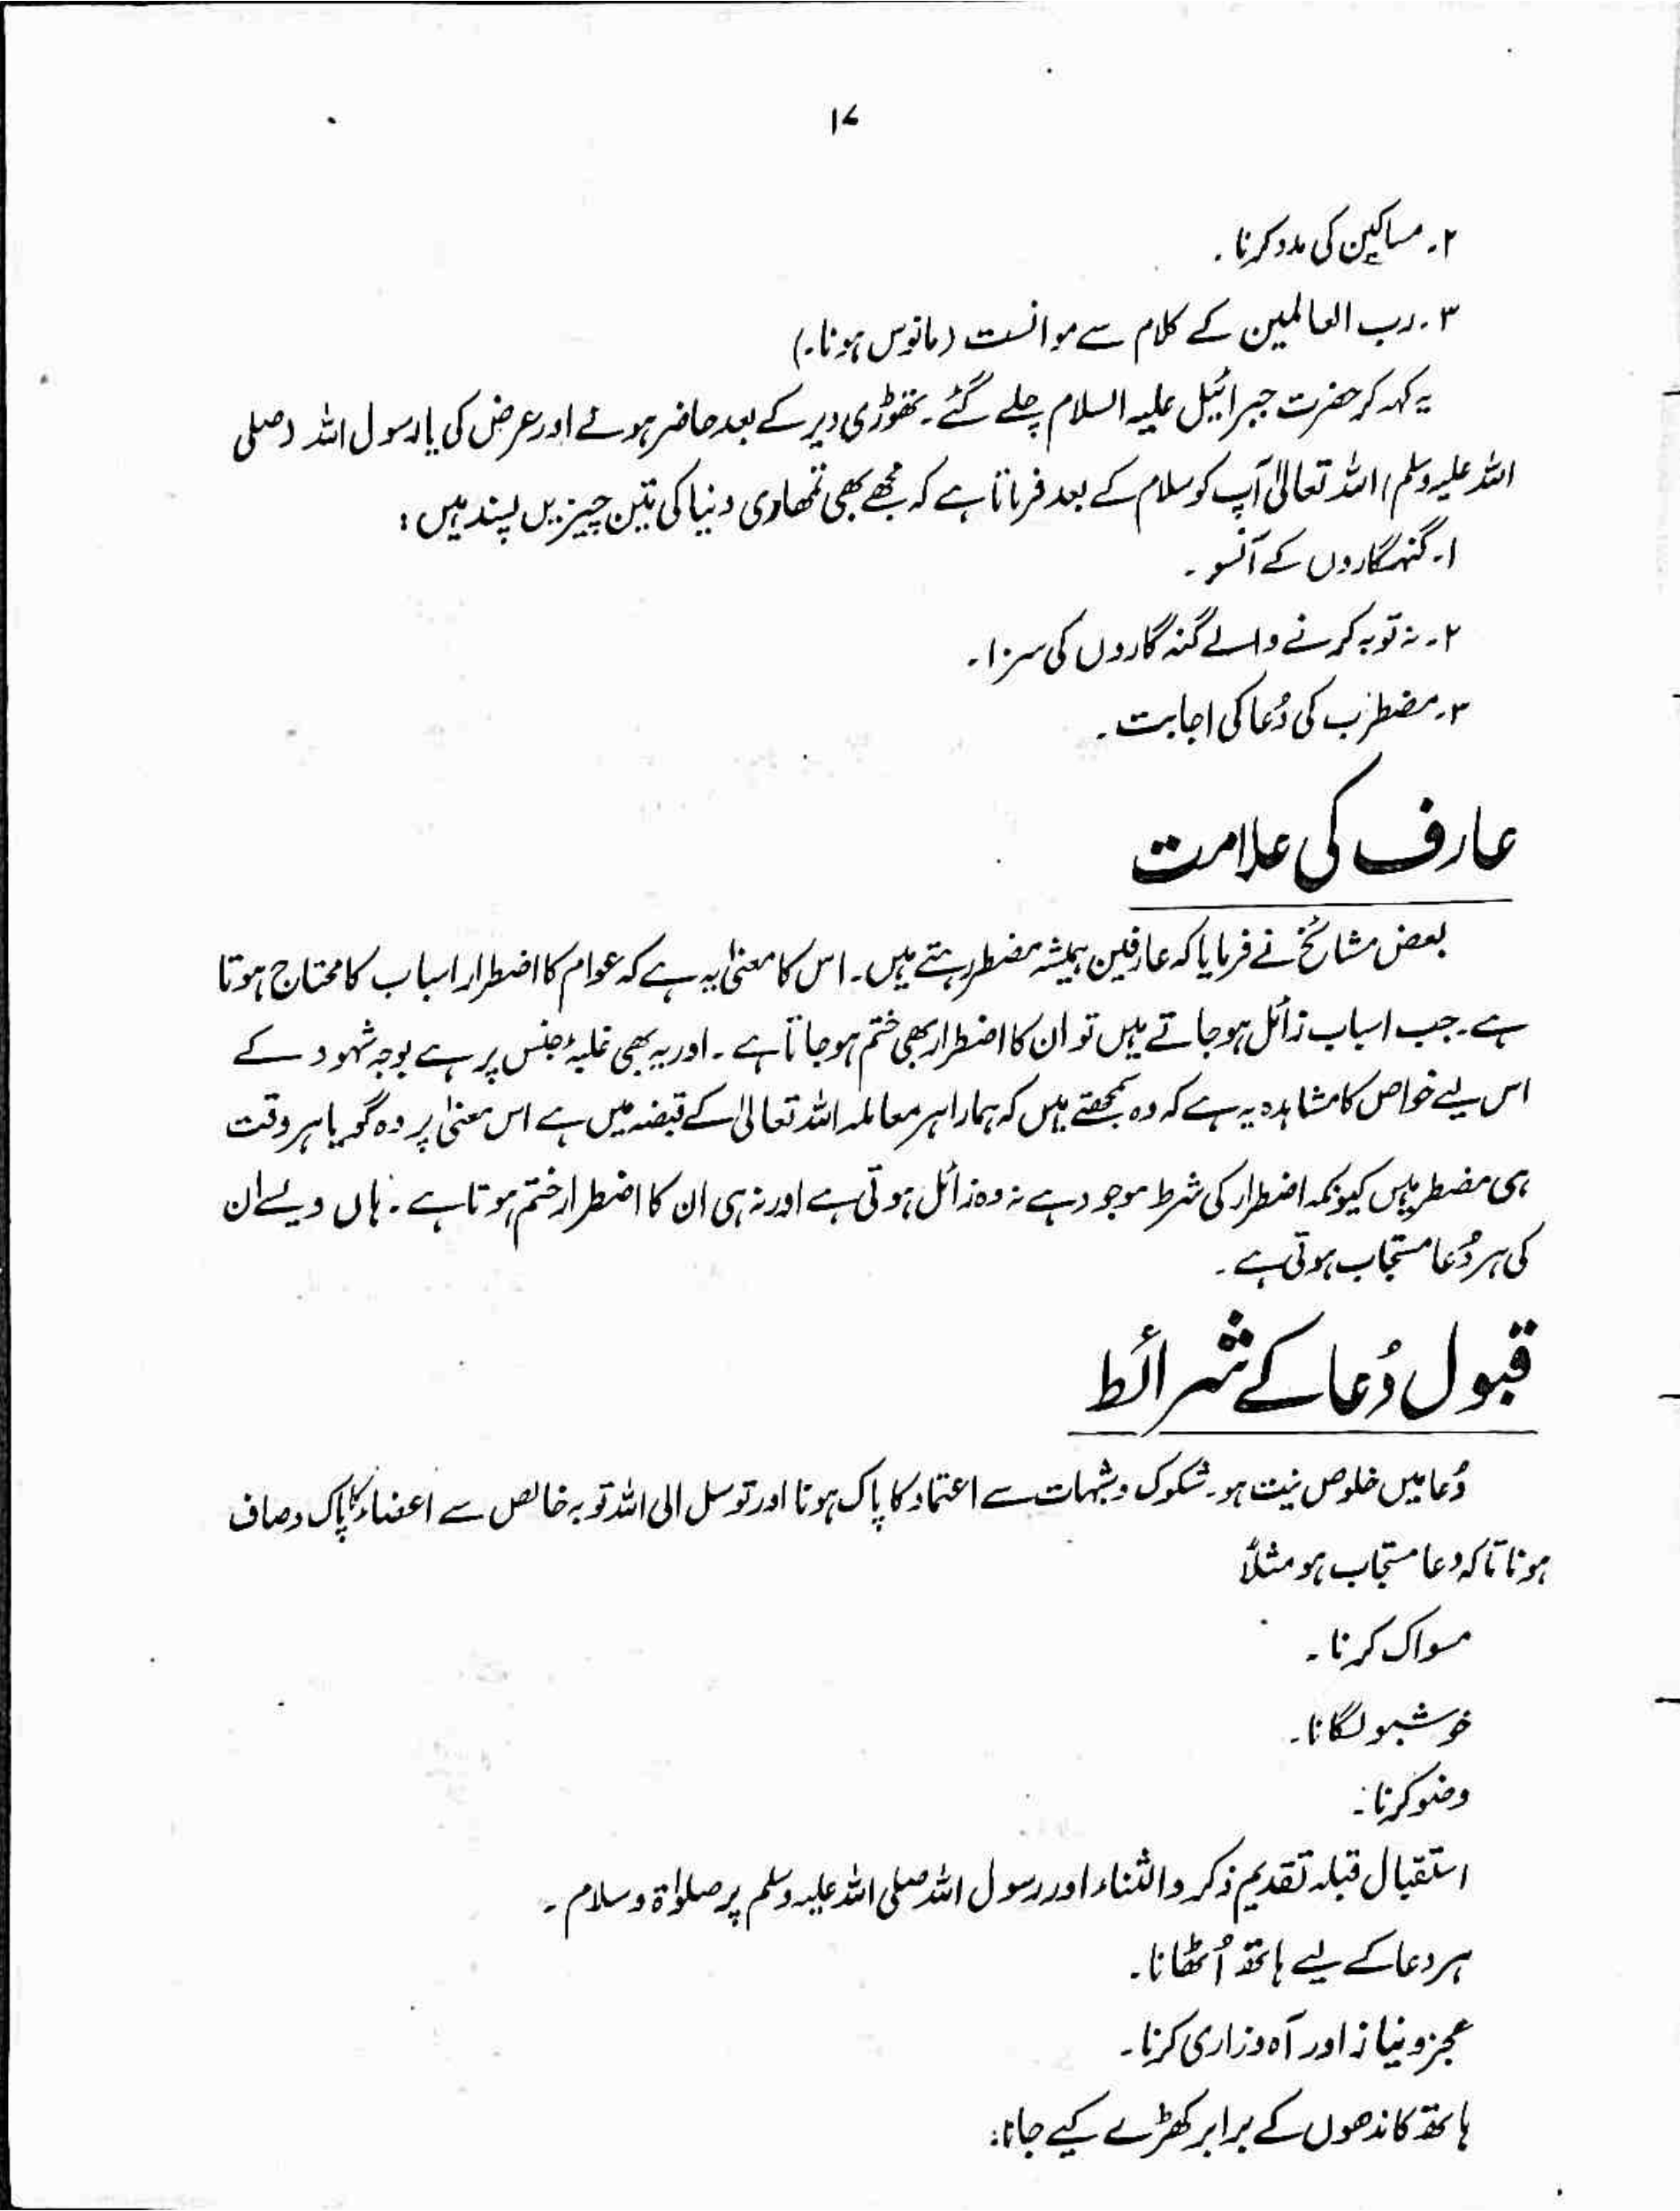 ۱۷
۲۔ مساکین کی مدد کرنا۔
۳۔ رب العالمین کے کلام سے موانست (مانوس ہونا۔)
یہ کہہ کر حضرت جبرائیل علیہ السلام چلے گئے۔ تھوڑی دیر کے بعد حاضر ہوئے اور عرض کی یا رسول اللہ (صلی
اللہ علیہ وسلم) اللہ تعالیٰ آپ کو سلام کے بعد فرماتا ہے کہ مجھے بھی تمھاری دنیا کی تین چیزیں پسند ہیں :
۱۔ گنہگاروں کے آنسو۔
۲۔ نہ توبہ کرنے والے گنہ گاروں کی سزا۔
۳۔ مضطرب کی دُعا کی اجابت۔
عارف کی علامت
بعض مشائخ نے فرمایا کہ عارفین ہمیشہ مضطر رہتے ہیں۔ اس کا معنیٰ یہ ہے کہ عوام کا اضطرار اسباب کا محتاج ہوتا
ہے۔ جب اسباب زائل ہو جاتے ہیں تو ان کا اضطرار بھی ختم ہو جاتا ہے۔ اور یہ بھی غلبۂ جنس پر ہے بوجہ شہود کے
اس لیے خواص کا مشاہدہ یہ ہے کہ وہ سمجھتے ہیں کہ ہمارا ہر معاملہ اللہ تعالیٰ کے قبضہ میں ہے اس معنیٰ پر وہ گویا ہر وقت
ہی مضطر ہیں کیونکہ اضطرار کی شرط موجود ہے نہ وہ زائل ہوتی ہے اور نہ ہی ان کا اضطرار ختم ہوتا ہے۔ ہاں ویسے ان
کی ہر دُعا مستجاب ہوتی ہے۔
قبول دُعا کے شرائط
دُعا میں خلوص نیت ہو۔ شکوک و شبہات سے اعتماد کا پاک ہونا اور توسل الی اللہ توبہ خالص سے اعضاء کا پاک و صاف
ہونا تاکہ دعا مستجاب ہو مثلاً
مسواک کرنا۔
خوشبو لگانا۔
وضو کرنا۔
استقبال قبلہ تقدیم ذکر والثناء اور رسول اللہ صلی اللہ علیہ وسلم پر صلوٰۃ و سلام۔
ہر دعا کے لیے ہاتھ اُٹھانا۔
عجز و نیاز اور آہ و زاری کرنا۔
ہاتھ کاندھوں کے برابر کھڑے کیے جانا: